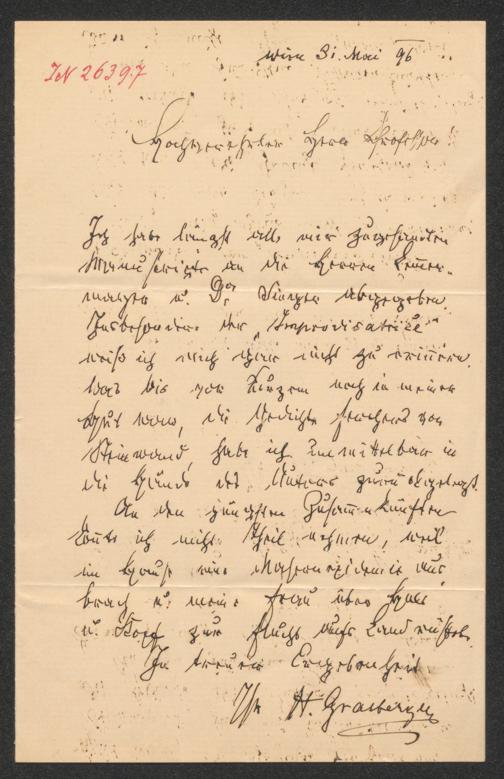 Wien 31. Mai 96
IN 26397
Hochverehrter Herr Professor!
Ich habe längst alle mir zugesandten
Manuskripte an die Herren Lemmer-
mayer u. Dr. Singer abgegeben.
Insbesondere der „Improvisatrice"
weiß ich mich gar nicht zu erinnern.
Was bis vor Kurzem noch in meiner
Hut war, die Gedichte Ferchers von
Steinwand, habe ich unmittelbar in
die Hände des Autors zurückgelegt.
An den jüngsten Zusammenkünften
konnte ich nicht Theil nehmen, weil
im Hause eine Masernepidemie aus-
brach u. meine Frau über Hals
u. Kopf zur Flucht aufs Land rüstete.
In treuer Ergebenheit
Ihr H. Grasberger